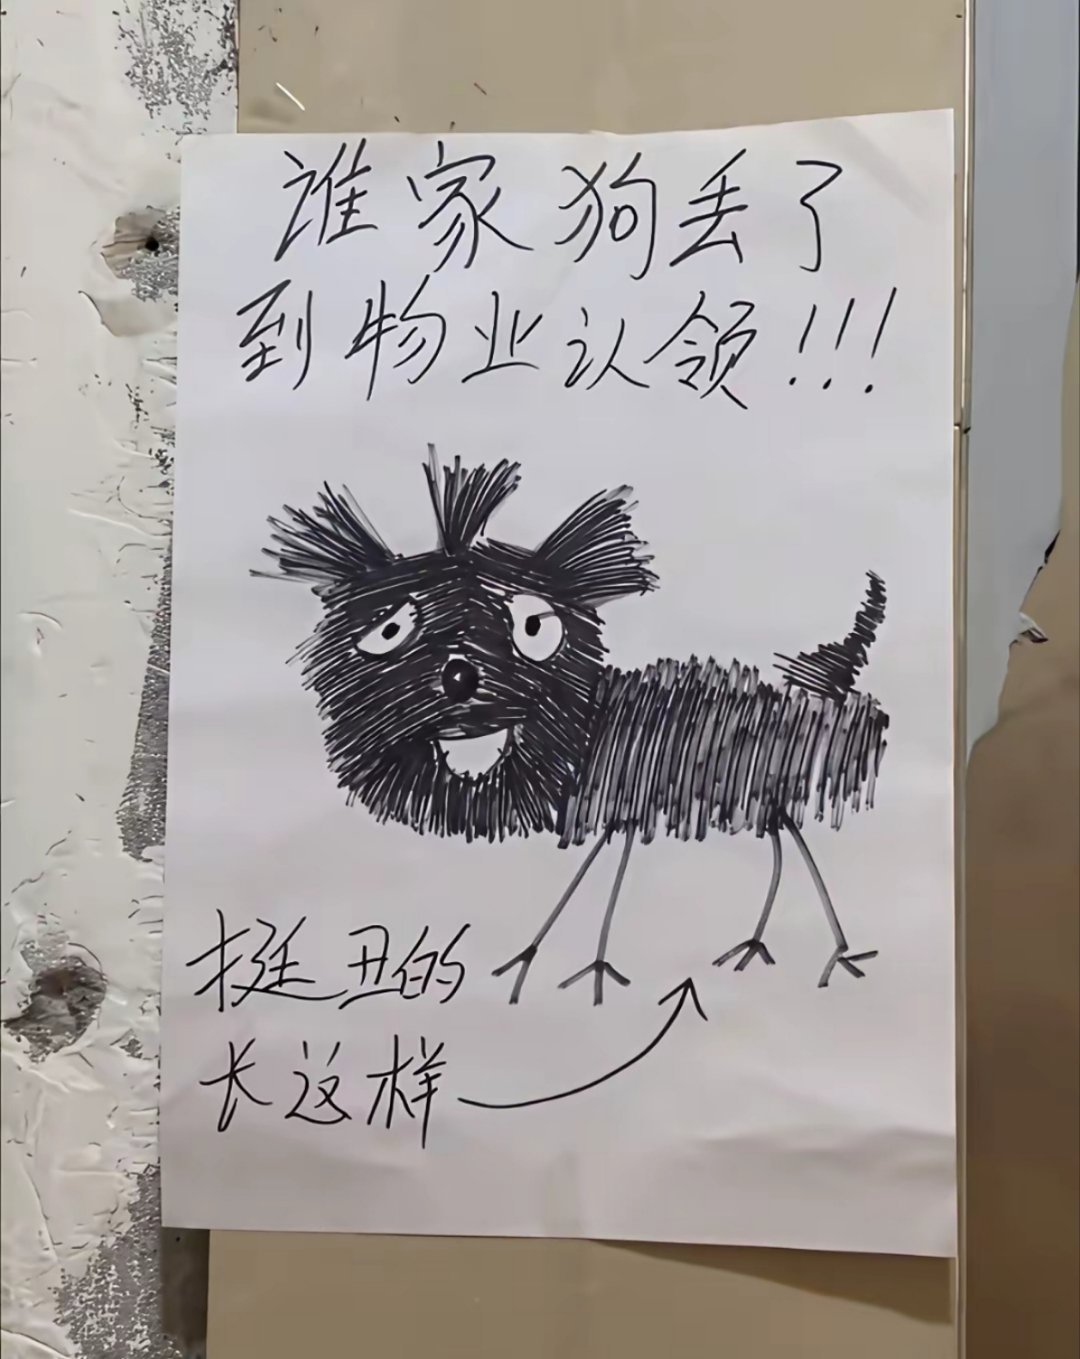 谁家狗丢了
到物业认领!!!
挺丑的
长这样